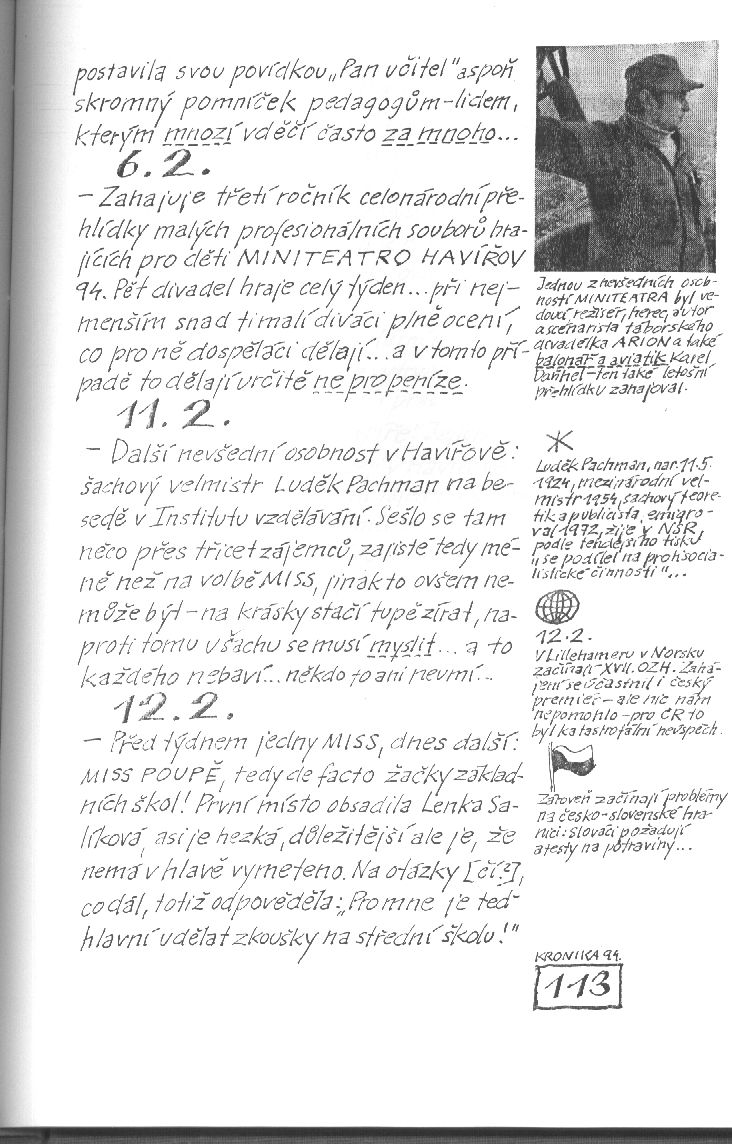 postavila svou povídkou „Pan učitel" aspoň
skromný pomníček pedagogům-lidem,
kterým mnozí vděčí často za mnoho...
6.2.
– Zahajuje třetí ročník celonárodní pře-
hlídky malých profesionálních souborů hra-
jících pro děti MINITEATRO HAVÍŘOV
94. Pět divadel hraje celý týden... při nej-
menším snad ti malí diváci plně ocení,
co pro ně dospěláci dělají... a v tomto pří-
padě to dělají určitě ne pro peníze.
11.2.
– Další nevšední osobnost v Havířově:
šachový velmistr Luděk Pachman na be-
sedě v Institutu vzdělávání. Sešlo se tam
něco přes třicet zájemců, zajisté tedy mé-
ně než na volbě MISS, jinak to ovšem ne-
může být – na krásky stačí tupě zírat, na-
proti tomu v šachu se musí myslit... a to
každého nebaví... někdo to ani neumí...
12.2.
– Před týdnem jedny MISS, dnes další:
MISS POUPĚ, tedy de facto žačky základ-
ních škol! První místo obsadila Lenka Sa-
líková, asi je hezká, důležitější ale je, že
nemá v hlavě vymeteno. Na otázky [čí?],
co dál, totiž odpověděla: „Pro mne je teď
hlavní udělat zkoušky na střední školu!"
Jednou z nevšedních osob-
ností MINITEATRA byl ve-
doucí režisér, herec, autor
a scénarista táborského
divadélka ARION a také
balonář a aviatik Karel
ten také letošní
přehlídku zahajoval.
Luděk Pachman, nar. 11.5.
1924, mezinárodní vel-
mistr 1954, šachový teore-
tik a publicista, emigro-
val 1972, žije v NSR,
podle tehdejšího tisku
„se podílel na protisocia-
listické činnosti"...
12.2.
V Lillehameru v Norsku
začínají XVII. OZH. Zahá-
jení se účastnil i český
premiér – ale nic nám
nepomohlo – pro ČR to
byl katastrofální neúspěch.
Zároveň začínají problémy
na česko-slovenské hra-
nici: slováci požadují
atesty na potraviny...
KRONIKA 94.
113